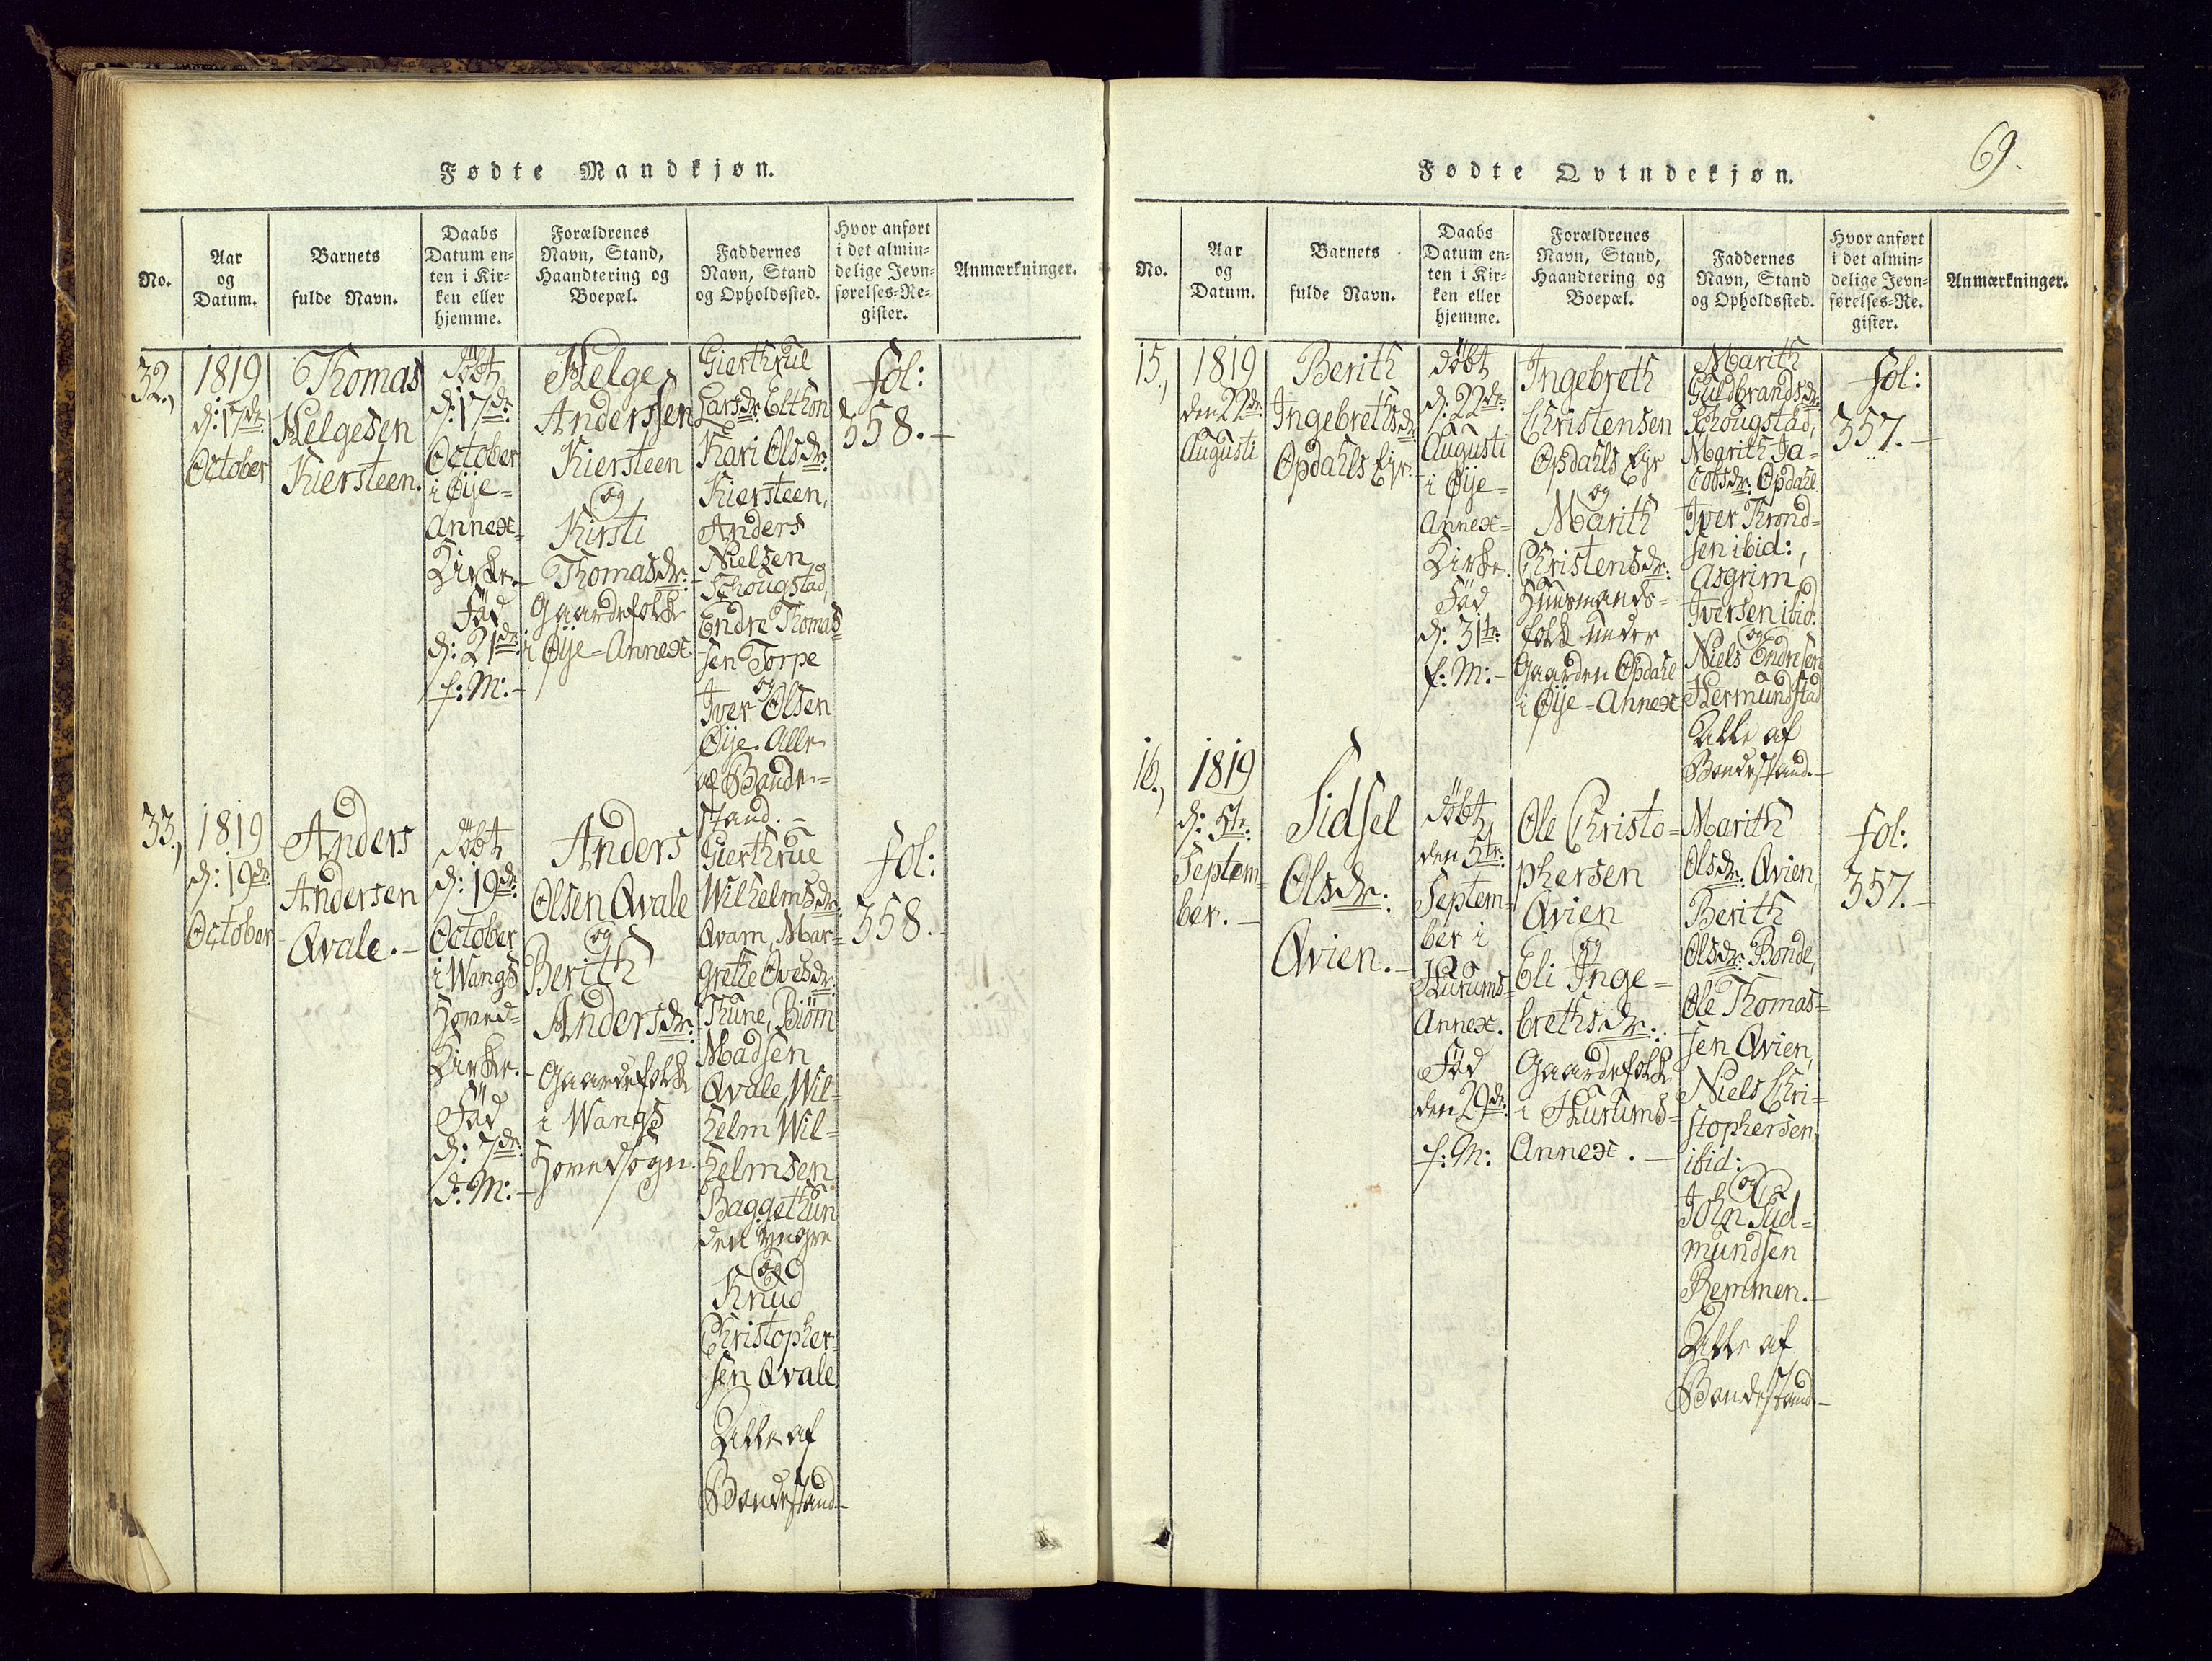 Fødte Mandkjøn.
No.
Aar
og
Datum.
Barnets
fulde Navn.
Daabs
Datum en-
ten i Kir-
ken eller
hjemme.
Forældrenes
Navn, Stand,
Haandtering og
Boepæl.
Faddernes
Navn, Stand
og Opholdssted.
Hvor anført
i det almin-
delige Jevn-
førelses-Re-
gister.
Anmærkninger.
32.,
1819
d: 17de
October
Thomas
Helgesen
Kiersteen.
döbt
d: 17de
October
i Øije-
Annex-
Kirke.-
Föd
d: 21de
f: M:-
Helge
Anderssen
Kiersteen
og
Kirsti
Thomasdr:
Gaardefolk
i Øije-Annex
Gierthrue
Larsdr. Elthon
Kari Olsdr:
Kiersteen,
Anders
Nielsen
Schougstad,
Endre Thomas-
sen Torpe
og
Iver Olsen
Øije. Alle
af Bonde-
stand.-
fol:
358.-
33.,
1819
d: 19de
October
Anders
Andersen
Qvale.-
döbt
d: 19de
October
i Wangs
Hoved-
Kirke.-
Föd
d: 7de
d: M:-
Anders
Olsen Qvale
og
Berith
Andersdr:
Gaardefolk
i Wangs
Hovedsogn.
Gierthrue
Wilhelmsdr:
Qvam, Mar-
grethe Ovesdr:
Thune, Biörn
Madsen
Qvale, Wil-
helm Wil-
helmsen
Baggethun
den yngre
og
Knud
Christopher-
sen Qvale.
Alle af
Bondestand.-
fol:
358.-
69.
Fødte Qvindekjøn.
No.
Aar
og
Datum.
Barnets
fulde Navn.
Daabs
Datum en-
ten i Kir-
ken eller
hjemme.
Forældrenes
Navn, Stand,
Haandtering og
Boepæl.
Faddernes
Navn, Stand
og Opholdssted.
Hvor anført
i det almin-
delige Jevn-
førelses-Re-
gister.
Anmærkninger.
15.,
1819
den 22de
Augusti
Berith
Ingebrethsdr.
Opdahls Ejr.
döbt
d: 22de
Augusti
i Øije-
Annex-
Kirke.
Föd
d: 31te
f: M:-
Ingebreth
Christensen
Opdahls Ejr
og
Marith
Christensdr:
Huusmands-
folk under
Gaarden Opdahl
i Øije-Annex
Marith
Guldbrandsdr:
Schougstad,
Marith Ja-
cobsdr: Opdahl
Iver Trond-
sen ibid:,
Asgrim
Iversen ibid:
og
Niels Endresen
Hermundstad
Alle af
Bondestand.-
fol:
357.-
16.,
1819
d: 5te
Septem-
ber.-
Sidsel
Olsdr:
Qvien.-
döbt
den 5te
Septem-
ber i
Hurums-
Annex.
Föd
den 29de
f: M:
Ole Christo-
phersen
Qvien
og
Eli Inge-
brethsdr:
Gaardefolk
i Hurums-
Annex.-
Marith
Olsdr: Qvien,
Berith
Olsdr: Bonde,
Ole Thomas-
sen Qvien,
Niels Chri-
stophersen
ibid:
og
John Gud-
mundsen
Remmen.-
Alle af
Bondestand.-
fol:
357.-